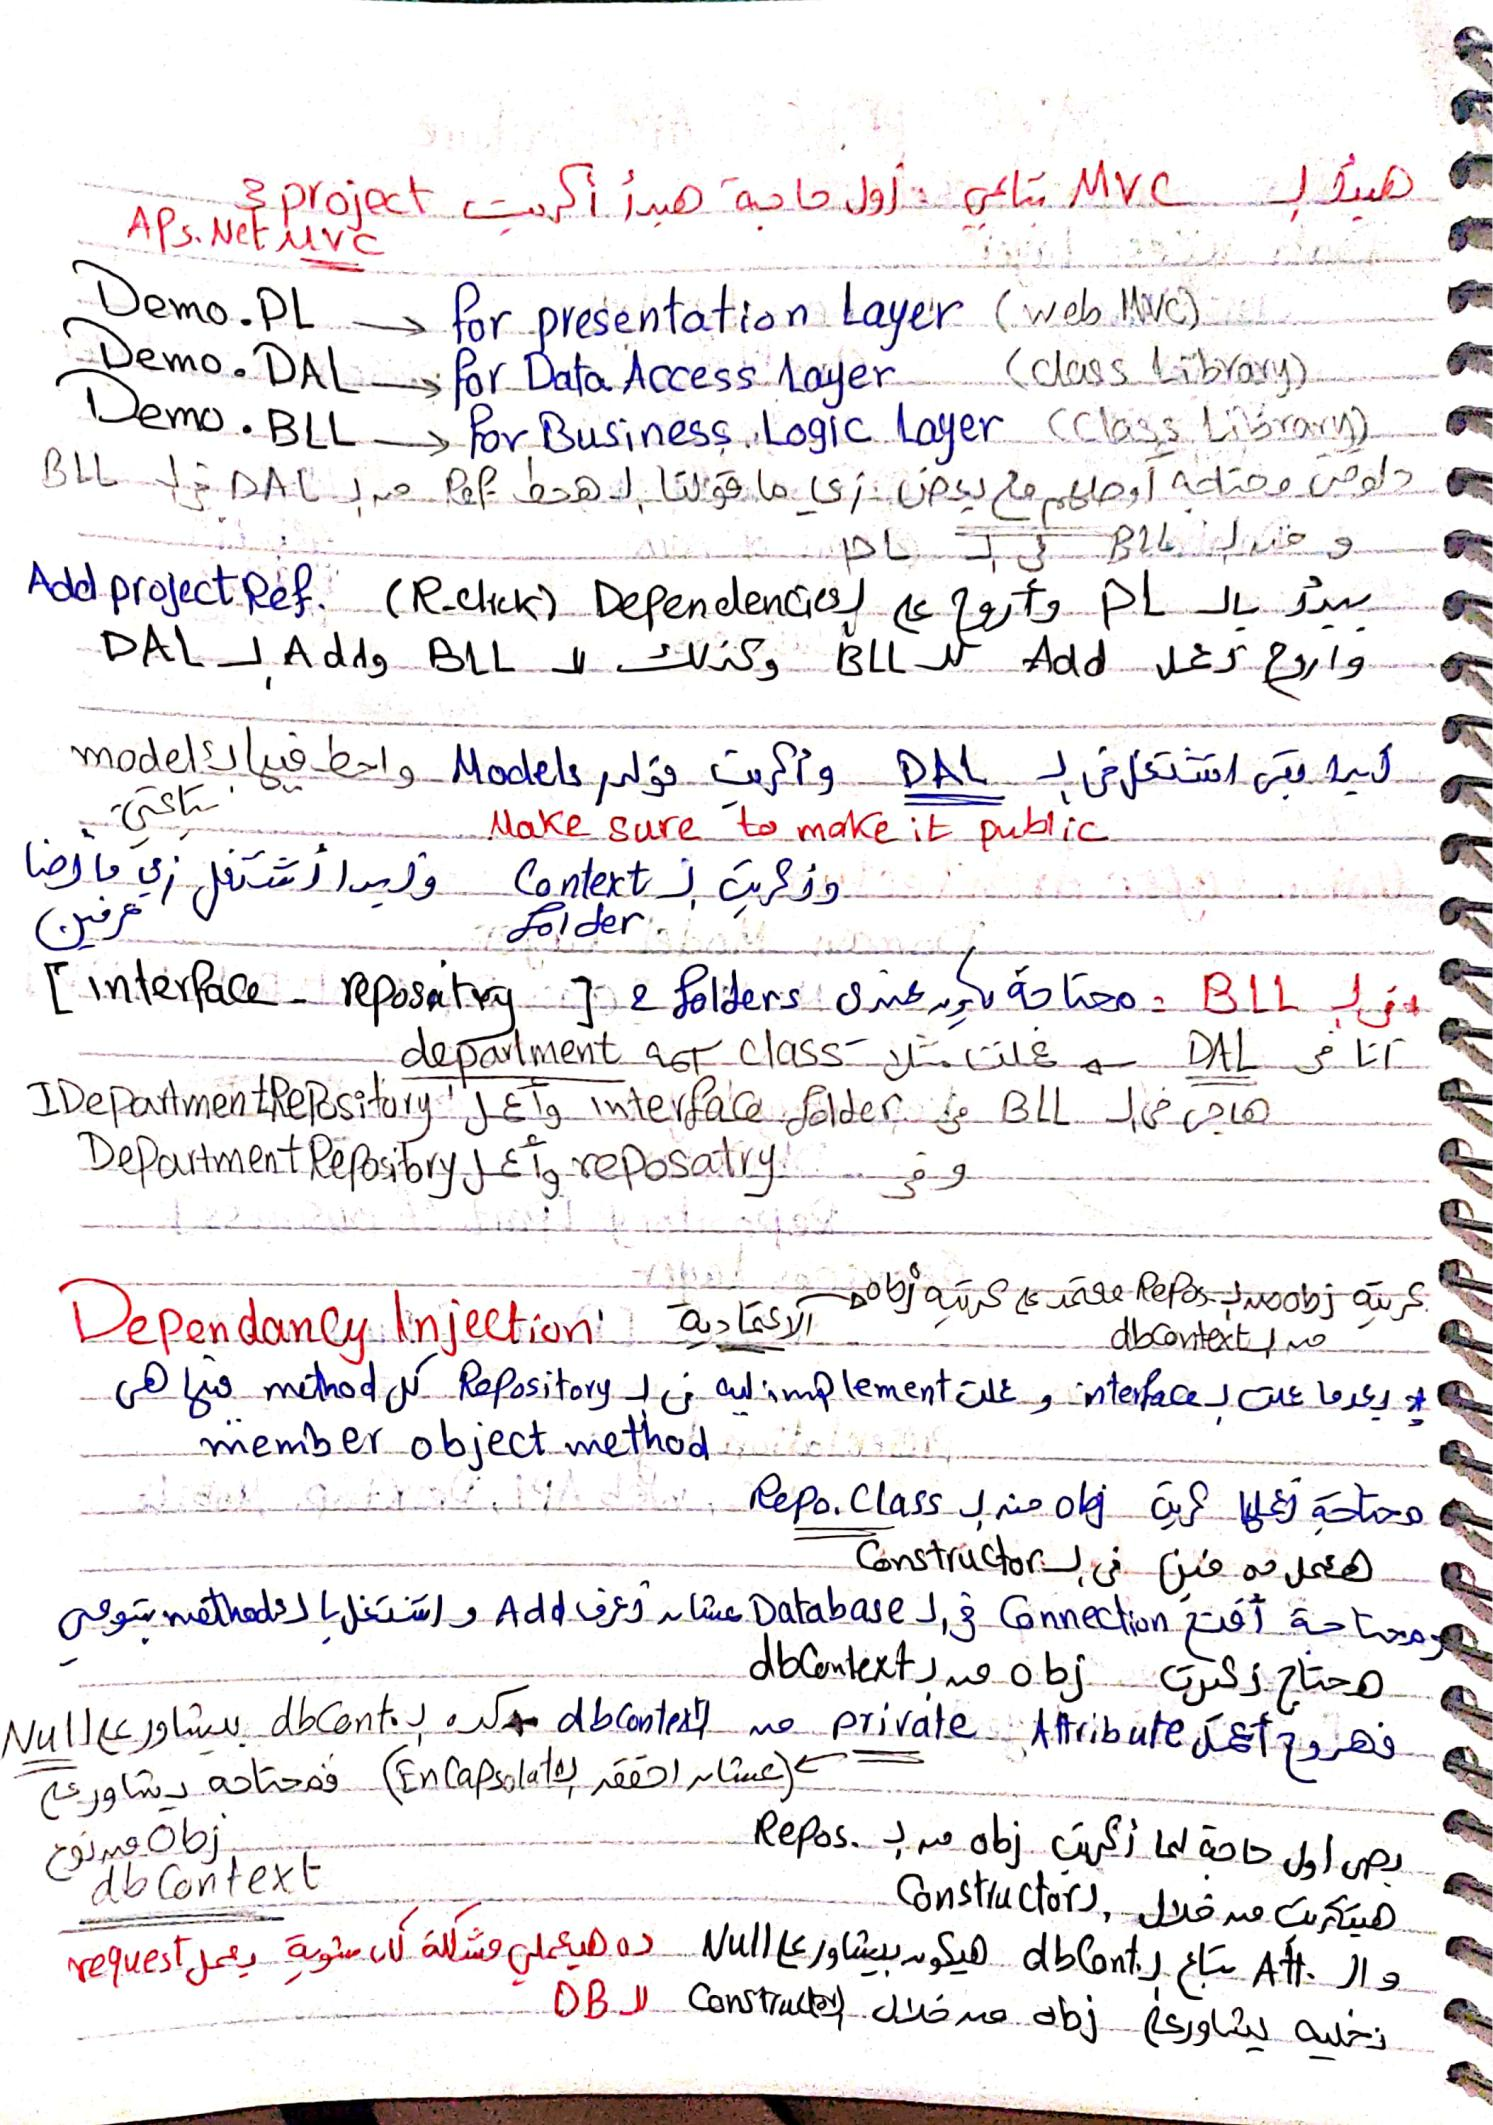 هبدأ بـ MVC بتاعي : أول حاجة هبدأ أكريت 3 project
APs.Net MVC
Demo.PL → for presentation Layer (web MVC)
Demo.DAL → for Data Access Layer (class Library)
Demo.BLL → for Business Logic Layer (Class Library)
دلوقتي محتاجه أوصلهم مع بعض زي ما قولنا هحط Ref من لـ DAL في لـ BLL
و من لـ BLL في لـ PL
ببدأ بالـ PL وأروح على لـ Dependencies (R-click) Add project Ref.
واروح أعمل Add للـ BLL وكذلك لـ BLL و Add لـ DAL
أبدأ بقى اشتغل في لـ DAL وأكريت فولدر Models واحط فيها لـ model
بتاعتي
Make sure to make it public
وأكريت لـ Context وأبدأ أشتغل زي ما أحنا
folder عرفين
في لـ BLL : محتاجة يكون عندي 2 folders [interface - reposatry]
أنا في DAL → عملت مثلا class اسمه department
هاجي في لـ BLL في interface folder وأعمل IDepartmentRepository
وفي reposatry وأعمل DepartmentRepository
Dependancy Injection: الاعتمادية → كريتة obj من لـ Repos. معتمد على كريتة obj
من لـ dbContext
* بعدما عملت لـ interface و عملت implement ليه في لـ Repository كل method فيها هي
member object method
محتاجة أعملها كريت obj من لـ Repo. Class
هعمل ده فين في لـ Constructor
ومحتاجة أفتح Connection في لـ Database عشان أعرف Add و اشتغل بالـ methods بتوعي
هحتاج أكريت obj من لـ dbContext
فهروح أعمل Attribute private من لـ dbContext كده لـ dbCont. بيشاور على Null
(عشان احقق لـ EnCapsolate) فمحتاجه يشاور على
Obj من نوع
dbContext
بص اول حاجة لما أكريت obj من لـ Repos.
هيتكريت من خلال لـ Constructor
و الـ Att. بتاع لـ dbCont. هيكون بيشاور على Null ده هيعملي مشكلة كل شوية يعمل request
لـ DB
نخليه يشاور على obj من خلال لـ Constructor